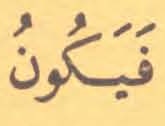 فَيَكُونُ